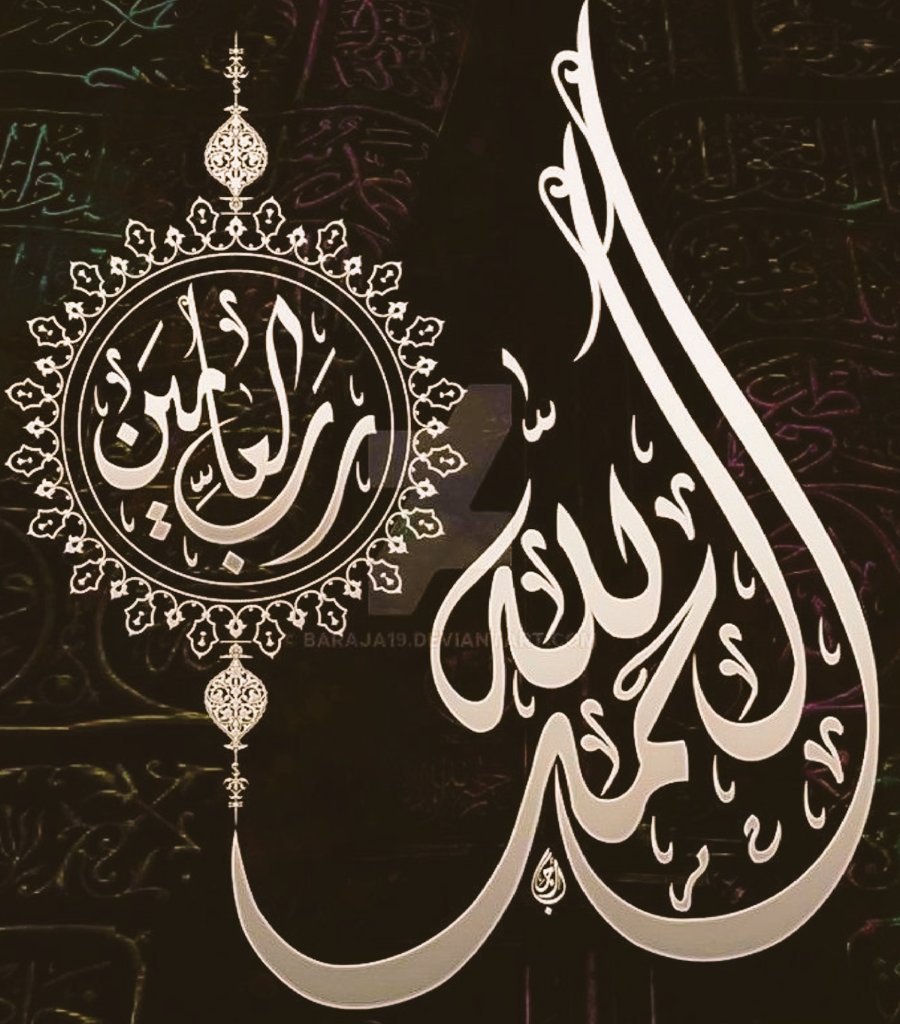 الحمد لله
رب العالمين
BARAJA19.DEVIANTART.COM